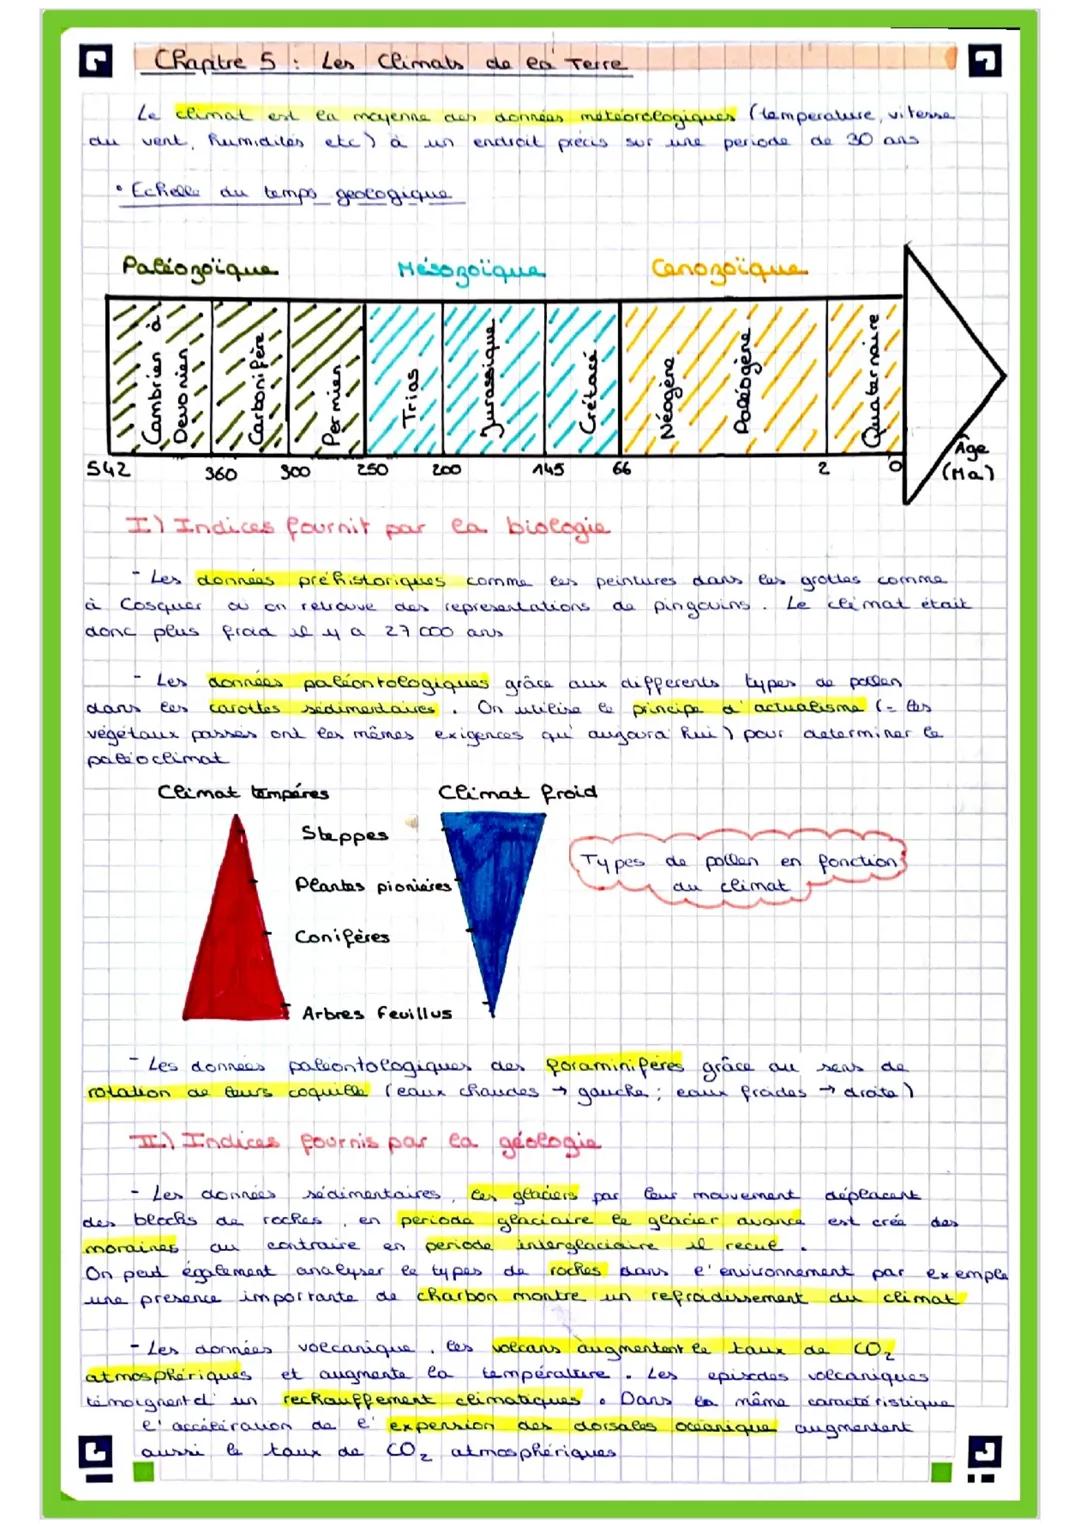 Chapitre 5 : Les Climats de la Terre
Le climat est la moyenne des données météorologiques (temperature, vitesse
du vent, humidités etc) à un endroit précis sur une periode de 30 ans
• Echelle du temps geologique
Paléozoïque Mésozoïque Cenozoïque
Cambrien à
Devonien
Carbonifère
Permien
Trias
Jurassique
Crétacé
Néogène
Paléogène
Quaternaire
542 360 300 250 200 145 66 2 0
Âge
(Ma)
I) Indices fournit par la biologie
- Les données préhistoriques comme les peintures dans les grottes comme
à Cosquer ou on retrouve des representations de pingouins. Le climat était
donc plus froid il y a 27 000 ans
- Les données paléontologiques grâce aux differents types de pollen
dans les carottes sédimentaires. On utilise le principe d'actualisme (= les
végétaux passés ont les mêmes exigences qu'aujourd'hui) pour determiner le
paléoclimat
Climat tempéres Climat froid
Steppes
Plantes pionières
Conifères
Arbres feuillus
Types de pollen en fonction
du climat
- Les données paleontologiques des foraminifères grâce au sens de
rotation de leurs coquille (eaux chaudes → gauche ; eaux froides → droite)
II) Indices fournis par la géologie
- Les données sédimentaires, les glaciers par leur mouvement déplacent
des blocks de roches, en periode glaciaire le glacier avance est crée des
moraines, au contraire en periode interglaciaire il recul.
On peut également analyser le types de roches dans l'environnement par exemple
une presence importante de charbon montre un refroidissement du climat
- Les données volcanique, les volcans augmentent le taux de CO2
atmosphériques et augmente la température. Les episodes volcaniques
témoignent d'un rechauffement climatiques. Dans la même caractéristique
l'accélération de l'expension des dorsales océanique augmentent
aussi le taux de CO2 atmosphériques